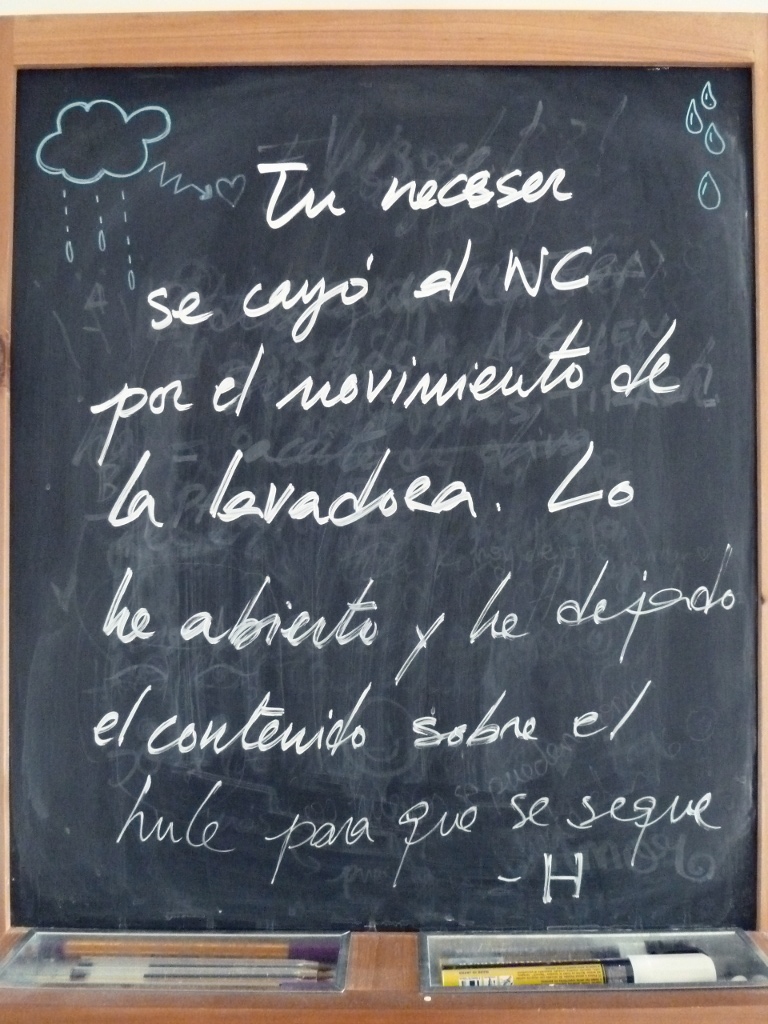 Tu neceser
se cayó al WC
por el movimiento de
la lavadora. Lo
he abierto y he dejado
el contenido sobre el
hule para que se seque
- H